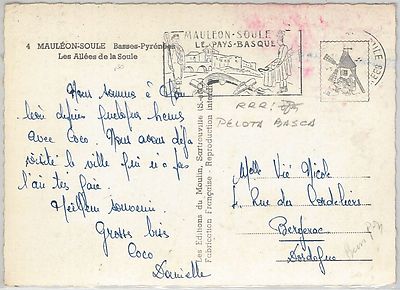 4 MAULÉON-SOULE Basses-Pyrénées
Les Allées de la Soule
MAULEON-SOULE
LE PAYS-BASQUE
RRR!
PELOTA BASCA
Nous sommes à Mau
léon depuis quelques heures
avec Coco. Nous avons déjà
visité la ville qui n'a pas
l'air très gaie.
Meilleur souvenir.
Grosses bises
Coco
Danielle
Les Editions du Moulin, Sartrouville (S.-&-O.)
Fabrication Française - Reproduction interdite
Melle Vié Nicole
Rue des Cordeliers
Bergerac
Dordogne